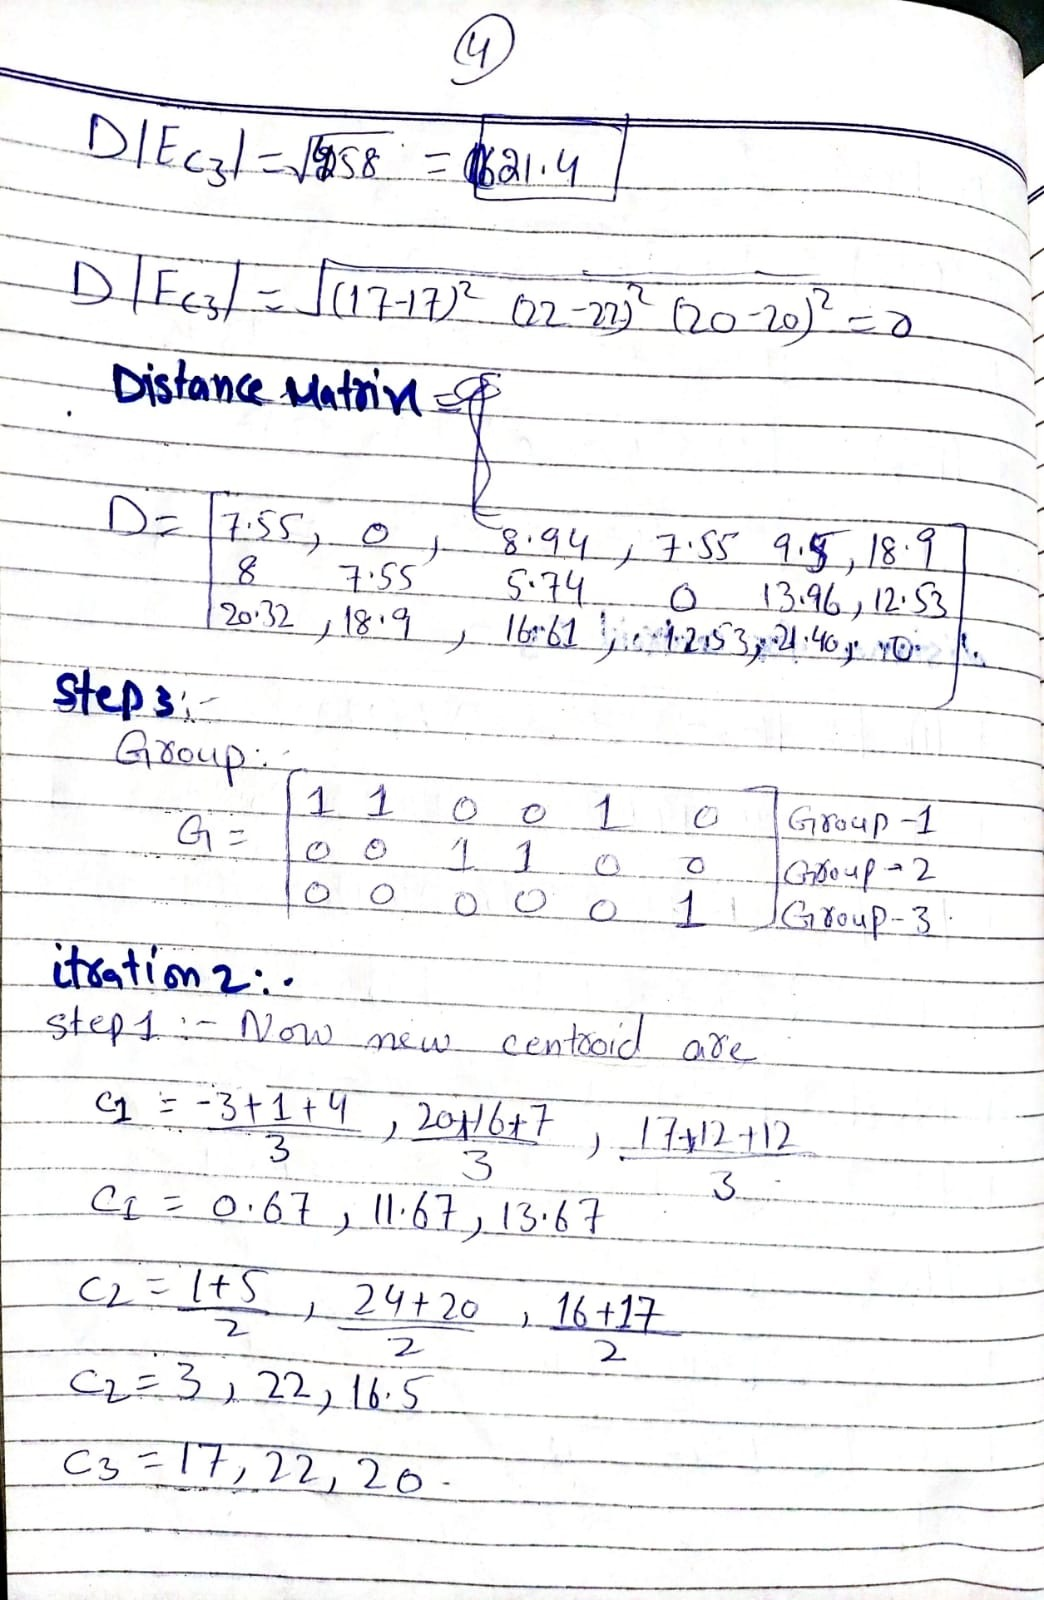 4
D|Ec3| = √458 = 21.4
D|Fc3| = √(17-17)² (22-22)² (20-20)² = 0
Distance Matrix =
D= [7.55, 0, 8.94, 7.55 9.5, 18.9
8 7.55 5.74 0 13.96, 12.53
20.32, 18.9, 16.61, 12.53, 21.40, 0]
Step 3:-
Group:
G = [1 1 0 0 1 0] Group-1
0 0 1 1 0 0 Group-2
0 0 0 0 0 1 Group-3
itration 2:.
step 1:- Now new centroid are
c1 = -3+1+4/3, 20+16+7/3, 17+12+12/3
C1 = 0.67, 11.67, 13.67
C2 = 1+5/2, 24+20/2, 16+17/2
C2 = 3, 22, 16.5
C3 = 17, 22, 20.